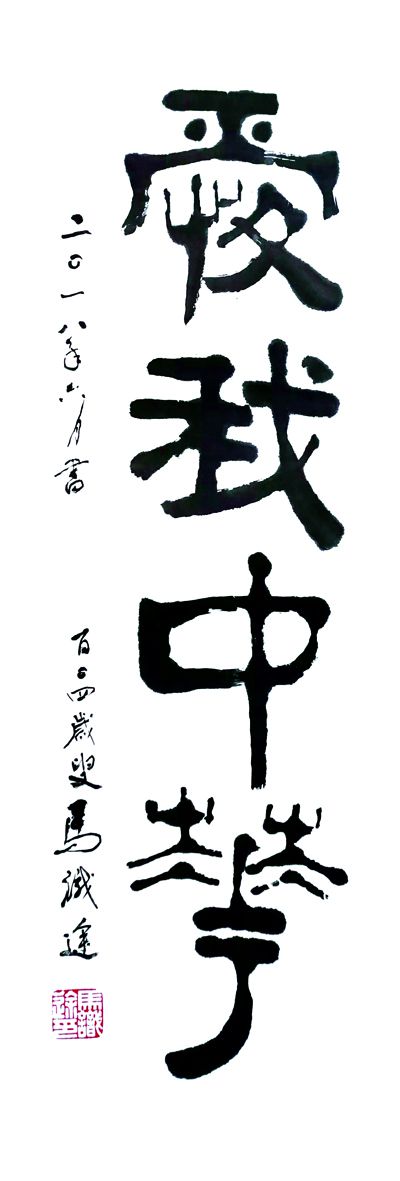 愛我中華
二〇一八年六月書
百〇四歲叟馬識途
馬識
途印